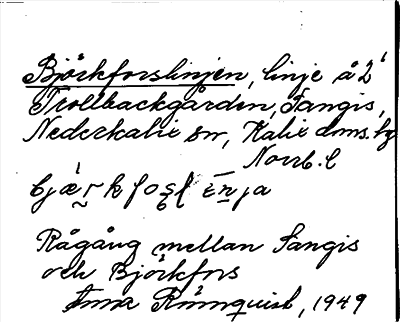 Björkforslinjen, linje å 2
Trollbackgården, Sangis,
Nederkalix sn, Kalix dms. bg
Norrb. l
Rågång mellan Sangis
och Björkfors
Anna Rönnquist, 1949